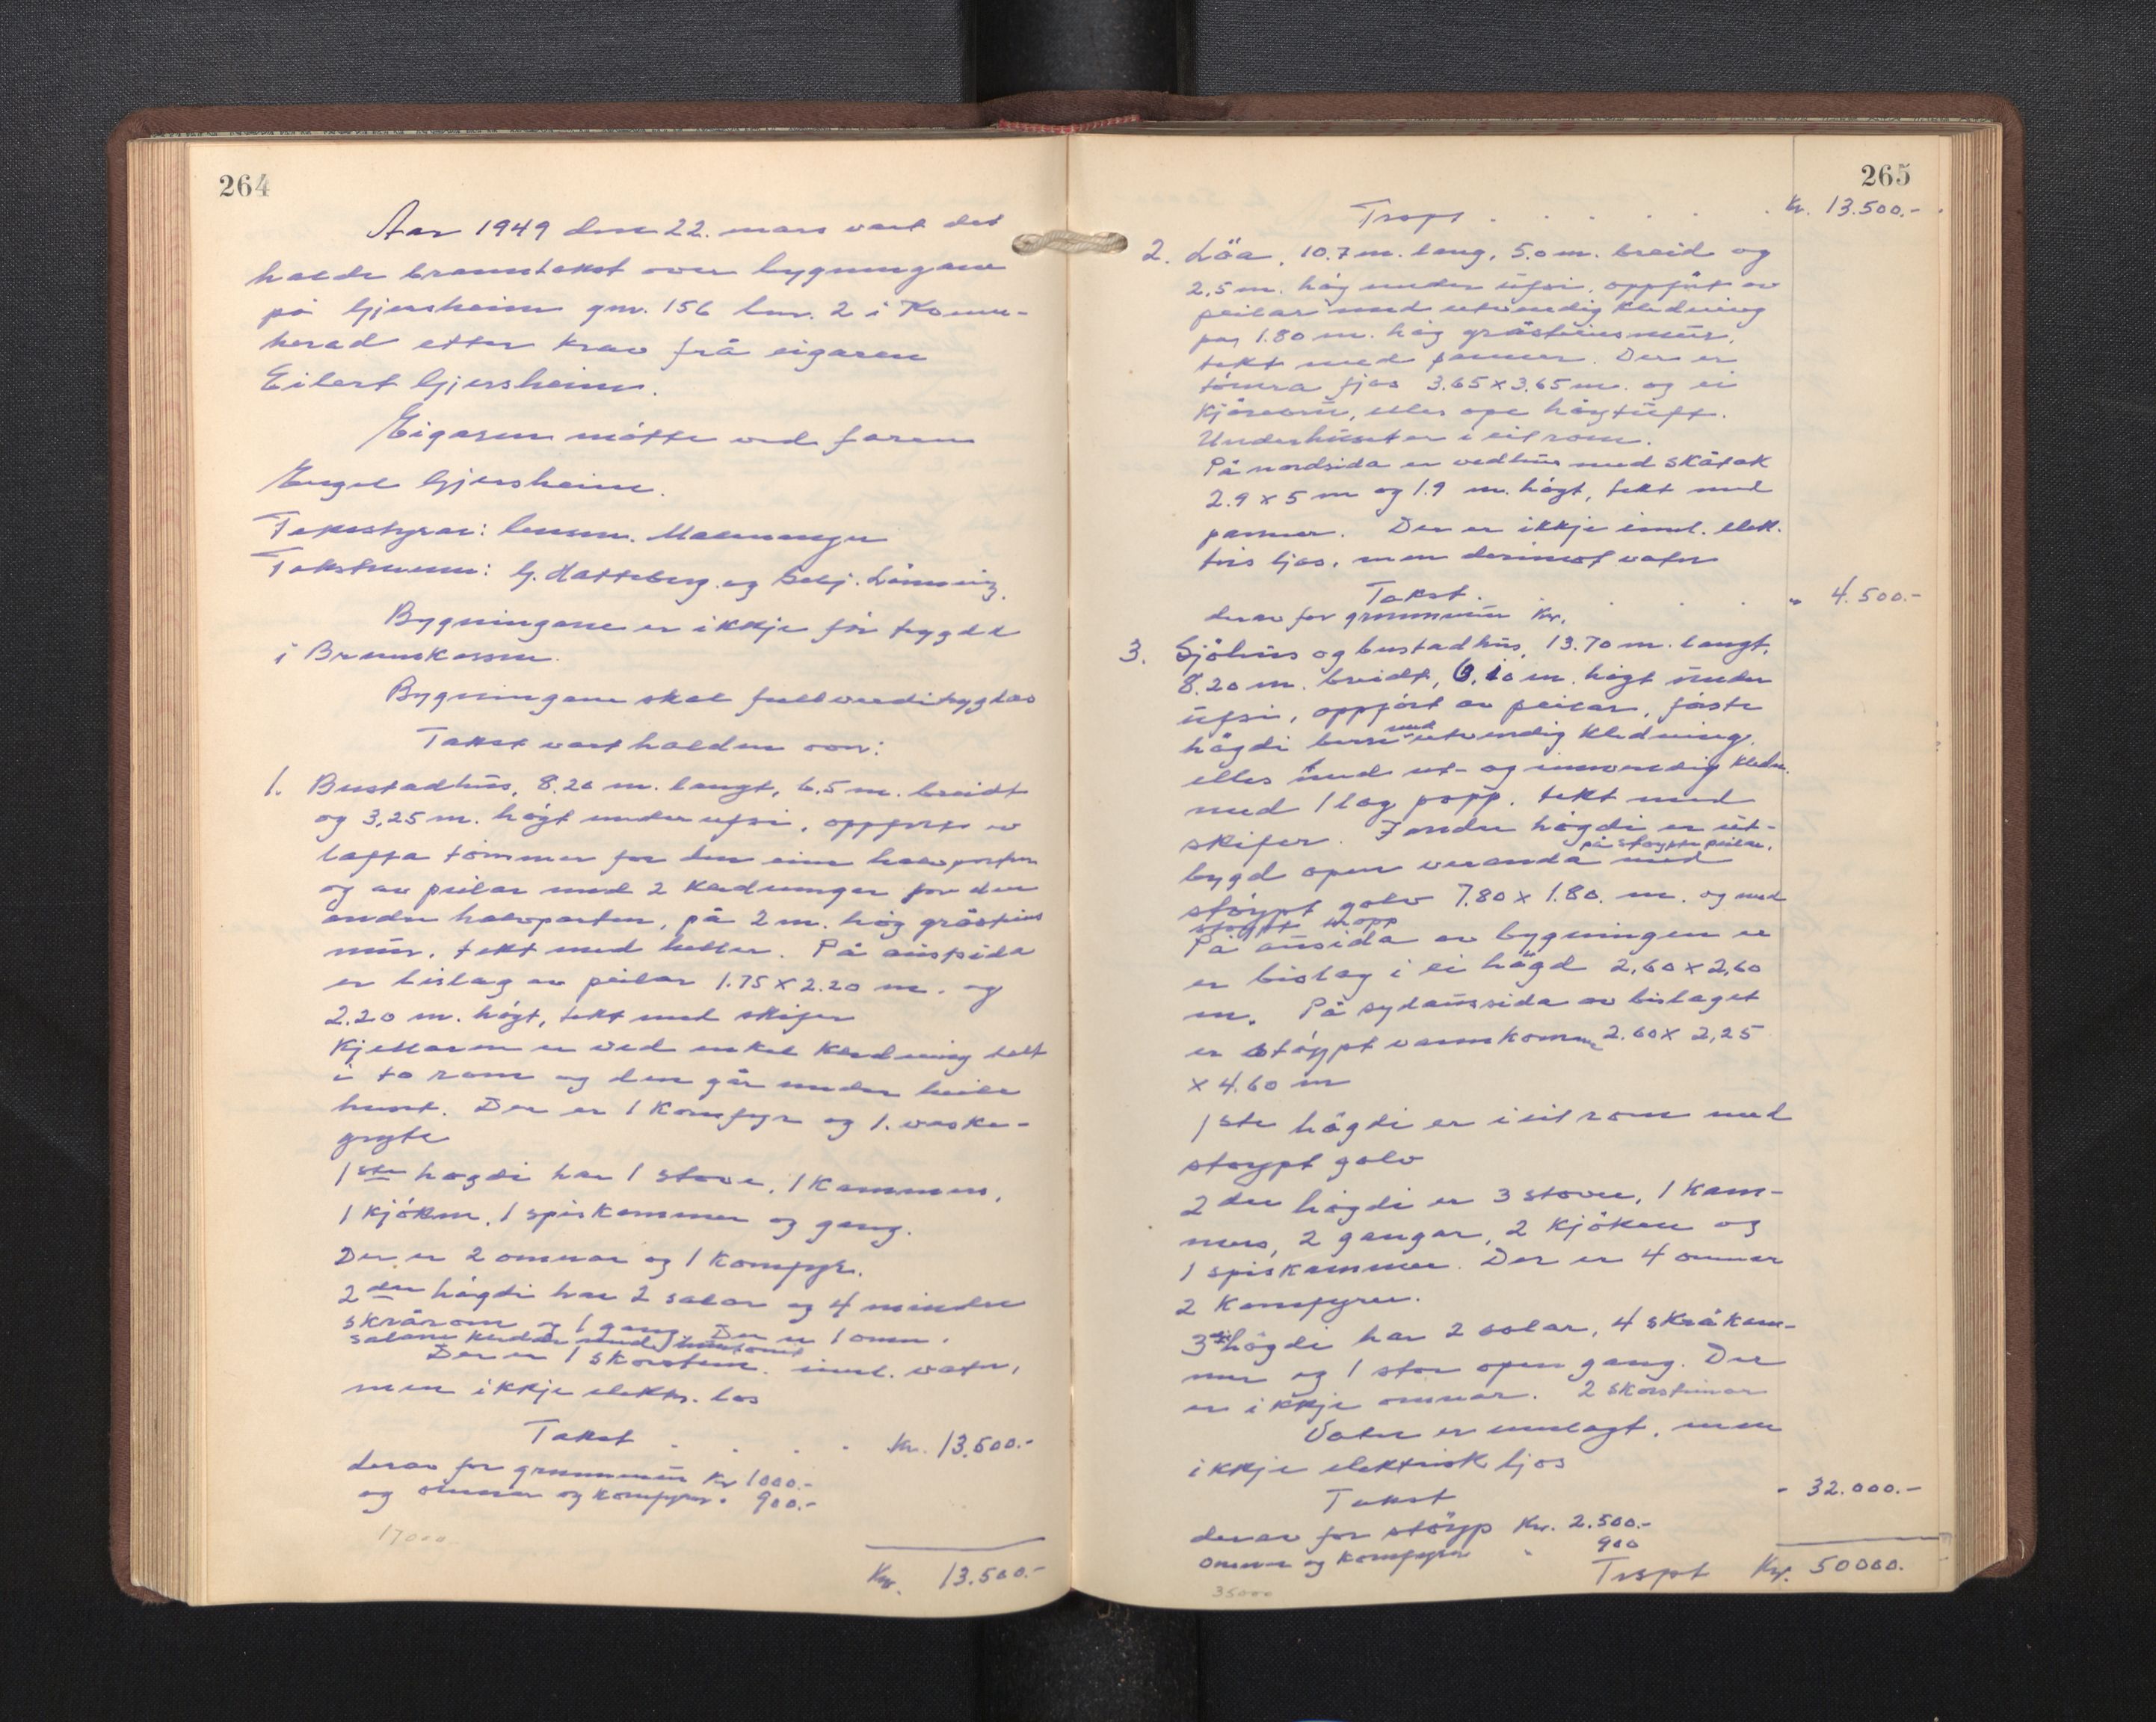 264
Aar 1949 den 22. mars vart det
halde branntakst over bygningane
på Gjersheim gnr. 156 bnr. 2 i Kvinn-
herad etter krav frå eigaren
Eilert Gjersheim.
Eigaren møtte ved faren
Engel Gjersheim.
Takststyrar: lensm. Malmanger
Takstmenn: G. Hatteberg og Selj. Lønning.
Bygningane er ikkje før trygda
i Brannkassen.
Bygningane skal fullverditrygdas
Takst vart halden over:
1. Bustadhus, 8.20 m. langt, 6.5 m. breidt
og 3,25 m. høgt under ufsi, oppført av
lafta tømmer for den eine halvparten
og av peilar med 2 kledningar for den
andre halvparten, på 2 m. høg gråsteins
mur, tekt med heller. På austsida
er bislag av peilar 1.75 x 2.20 m. og
2.20 m. høgt, tekt med skifer
Kjellaren er ved enkel kledning delt
i to rom og den går under heile
huset. Der er 1 komfyr og 1. vaske-
gryte
1ste høgdi har 1 stove, 1 kammers,
1 kjøken, 1 spiskammer og gang.
Der er 2 omnar og 1 komfyr.
2dre høgdi har 2 salar og 4 mindre
skrårom og 1 gang. Der er 1 omn.
salane kledde med
Der er 1 skorstein. innl. vatn,
men ikkje elektr. los
Takst . . . . Kr. 13.500.-
derav for grunnmur Kr 1000.-
og omnar og komfyrer. 900.-
17000
Kr. 13.500.-
265
Trspt . . . . . . Kr. 13.500.-
2. Löa, 10.7 m. lang, 5.0 m. breid og
2,5 m. høg under ufsi, oppført av
peilar med utvendig kledning
paa 1.80 m. høg gråsteinsmur,
tekt med panner. Der er
tømra fjøs 3.65 x 3.65 m. og ei
kjørebru, elles ope høgtuft.
Underhuset er i eit rom.
På nordsida er vedhus med skåtak
2.9 x 5 m og 1.9 m. høgt, tekt med
panner. Der er ikkje innl. elek-
tris ljos, men derimot vatn
Takst. . . . . " 4.500.-
derav for grunnmur Kr.
3. Sjøhus og bustadhus, 13.70 m. langt,
8.20 m. breidt, 6.10 m. høgt under
ufsi, oppført av peilar, første
høgdi berre med utvendig kledning,
elles med ut- og innvendig kledn.
med 1 lag papp. tekt med
skifer. I andre høgdi er ut-
på støypte peilar.
bygd open veranda med
støypt golv 7.80 x 1.80. m. og med
støypt trapp
På ausida av bygningen er
er bislag i ei høgd 2,60 x 2,60
m. På sydaussida av bislaget
er støypt vannkomme 2.60 x 2,25
x 4.60 m
1ste høgdi er i eit rom med
støypt golv
2dre høgdi er 3 stover, 1 kam-
mers, 2 gangar, 2 kjøken og
1 spiskammer. Der er 4 omnar
2 komfyrer.
3die høgdi har 2 salar, 4 skråkam-
mer og 1 stor open gang. Der
er ikkje omnar. 2 skorsteinar
Vatn er innlagt, men
ikkje elektrisk ljos
Takst - 32.000.-
derav for støyp Kr. 2.500.-
omnar og komfyrer " 900
Trspt Kr. 50000.
35000